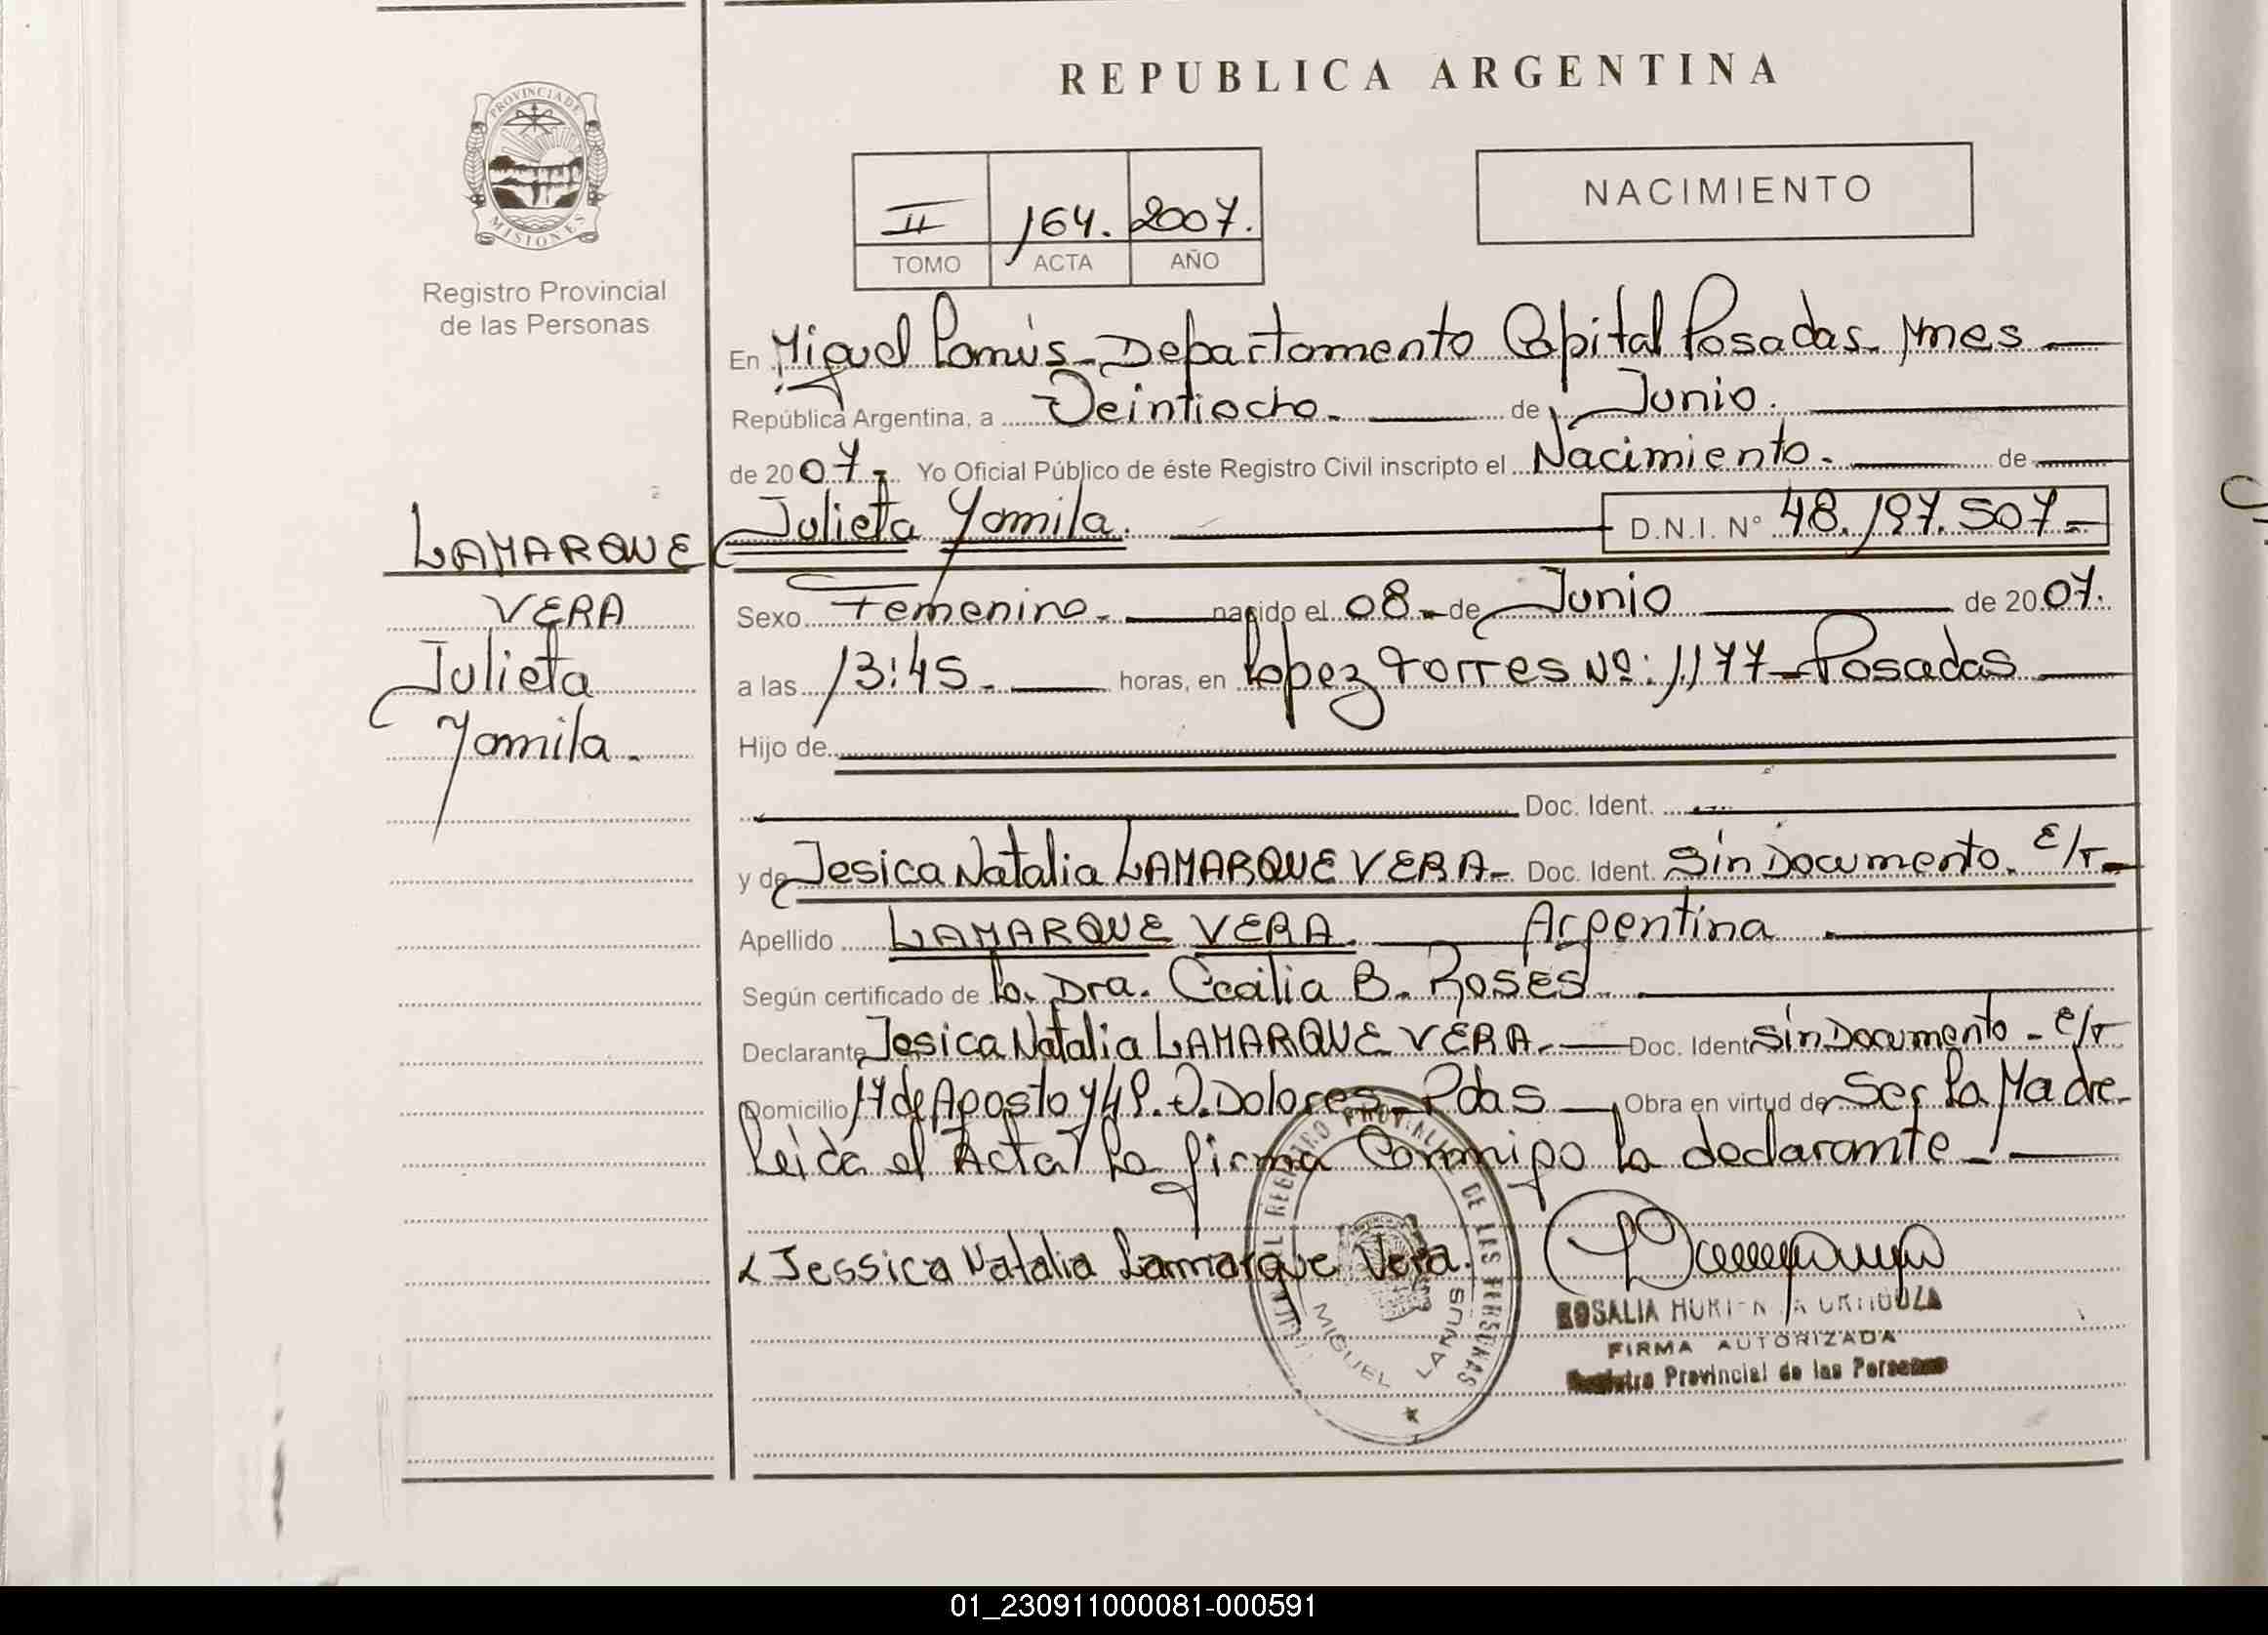 REPUBLICA ARGENTINA
PROVINCIA DE
MISIONES
Registro Provincial
de las Personas
II 164. 2007.
TOMO ACTA AÑO
NACIMIENTO
En Miguel Lanús - Departamento Capital Posadas. Mnes
República Argentina, a Veintiocho. de Junio.
de 2007- Yo Oficial Público de éste Registro Civil inscripto el Nacimiento. de
Julieta Yamila. D.N.I. N° 48.197.507-
LAMARQUE
VERA
Julieta
Yamila.
Sexo Femenino. nacido el 08- de Junio de 2007.
a las 13:45. horas, en Lopez Torres Nº: 1177 - Posadas
Hijo de
Doc. Ident.
y de Jesica Natalia LAMARQUE VERA- Doc. Ident. Sin Documento. E/T-
Apellido LAMARQUE VERA. Argentina
Según certificado de la Dra. Cecilia B. Roses
Declarante Jesica Natalia LAMARQUE VERA.- Doc. Ident Sin Documento - E/T
Domicilio 17 de Agosto y 49. V. Dolores - Pdas Obra en virtud de Ser la Madre-
Leída el Acta la firma conmigo la declarante -
x Jessica Natalia Lamarque Vera.
REGISTRO PROVINCIAL DE LAS PERSONAS
MIGUEL LANUS
ROSALIA
FIRMA AUTORIZADA
Registro Provincial de las Personas
01_230911000081-000591